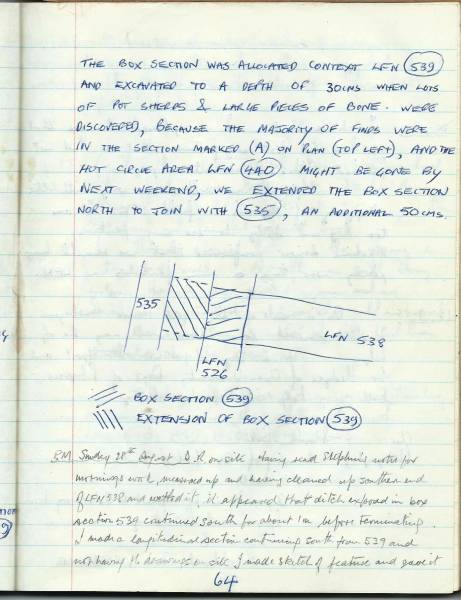 THE BOX SECTION WAS ALLOCATED CONTEXT LFN 539
AND EXCAVATED TO A DEPTH OF 30CMS WHEN LOTS
OF POT SHERDS & LARGE PIECES OF BONE. WERE
DISCOVERED, BECAUSE THE MAJORITY OF FINDS WERE
IN THE SECTION MARKED (A) ON PLAN (TOP LEFT), AND THE
HUT CIRCLE AREA LFN 440 MIGHT BE GONE BY
NEXT WEEKEND, WE EXTENDED THE BOX SECTION
NORTH TO JOIN WITH 535, AN ADDITIONAL 50CMS.
535
LFN 538
LFN
526
BOX SECTION 539
EXTENSION OF BOX SECTION 539
B.M. Sunday 28th August D.R. on site Having read Stephen's notes for
mornings work, measured up and having cleaned up southern end
of LFN 538 and wetted it, it appeared that ditch exposed in box
section 539 continued south for about 1m before terminating.
I made a longitudinal section continuing south from 539 and
not having the drawings on site I made sketch of feature and gave it
64